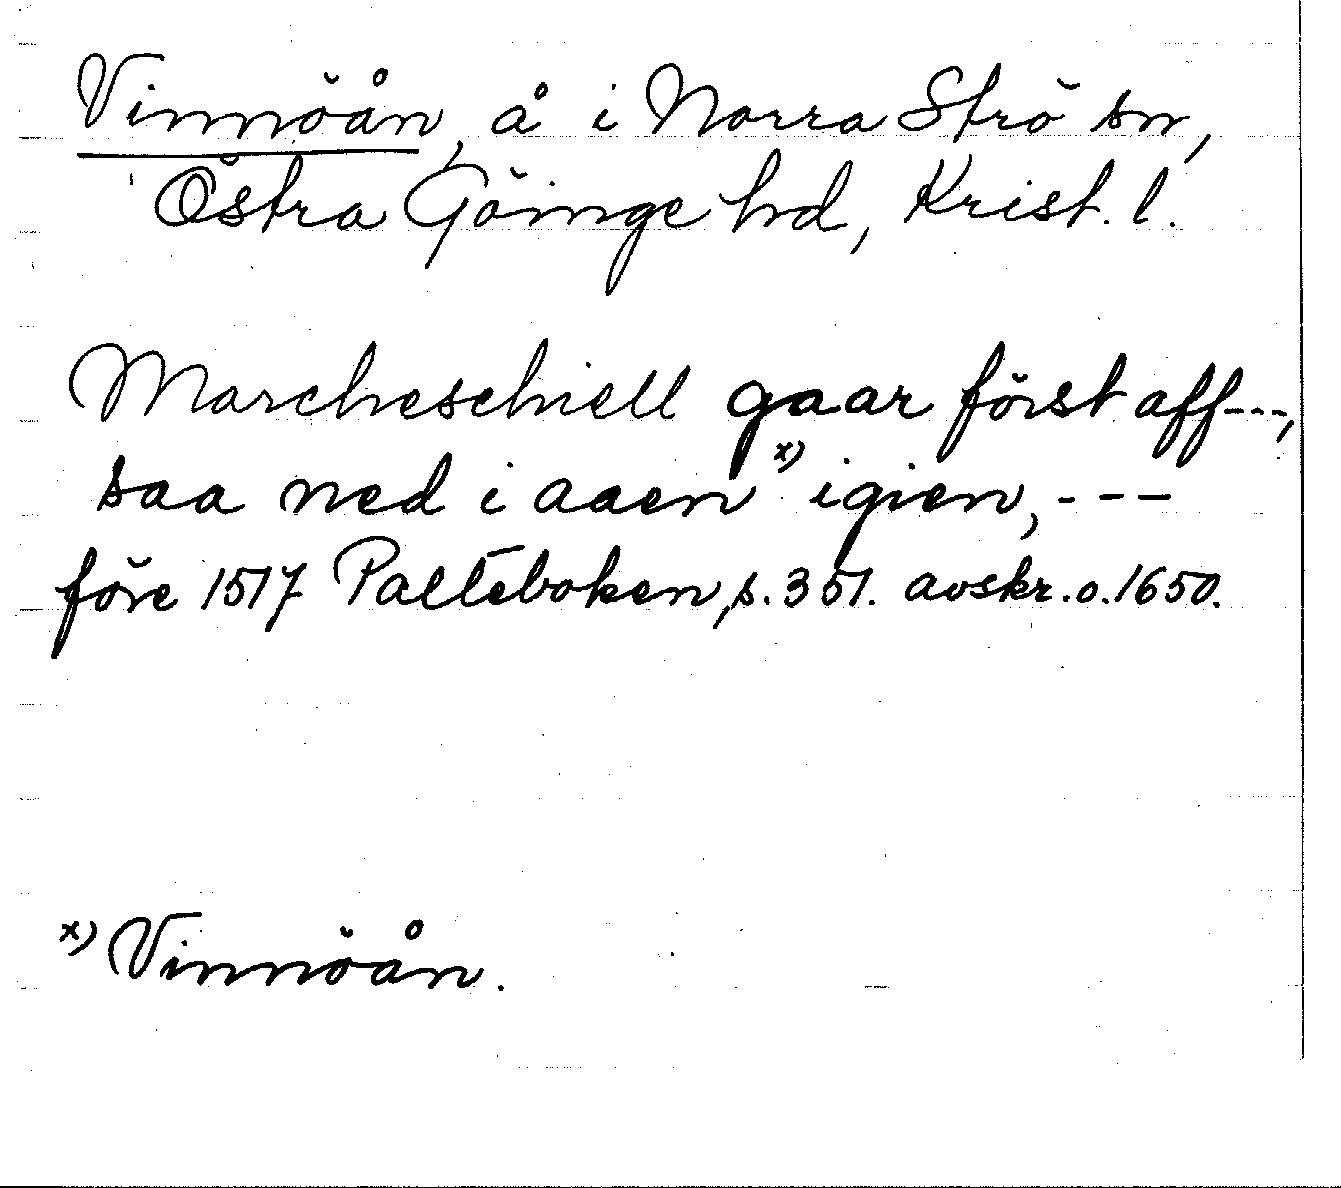 Vinnöån, å i Norra Strö sn,
Östra Göinge hd, Krist. l.
Marcheschiell gaar först aff---,
saa ned i aaen x) igien, ---
före 1517 Palteboken, s. 351. avskr. o. 1650.
x) Vinnöån.